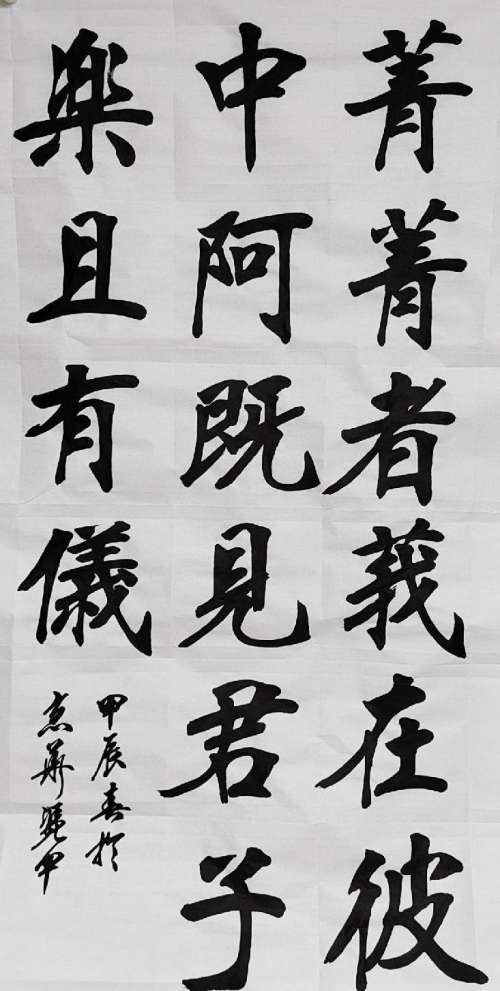 菁菁者莪在彼
中阿既見君子
樂且有儀
甲辰春於
京華